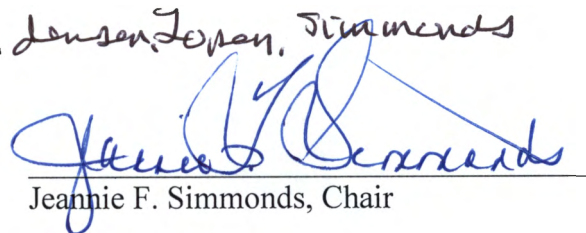 Jensen, Lopen, Simmonds
Jeannie F. Simmonds
Jeannie F. Simmonds, Chair